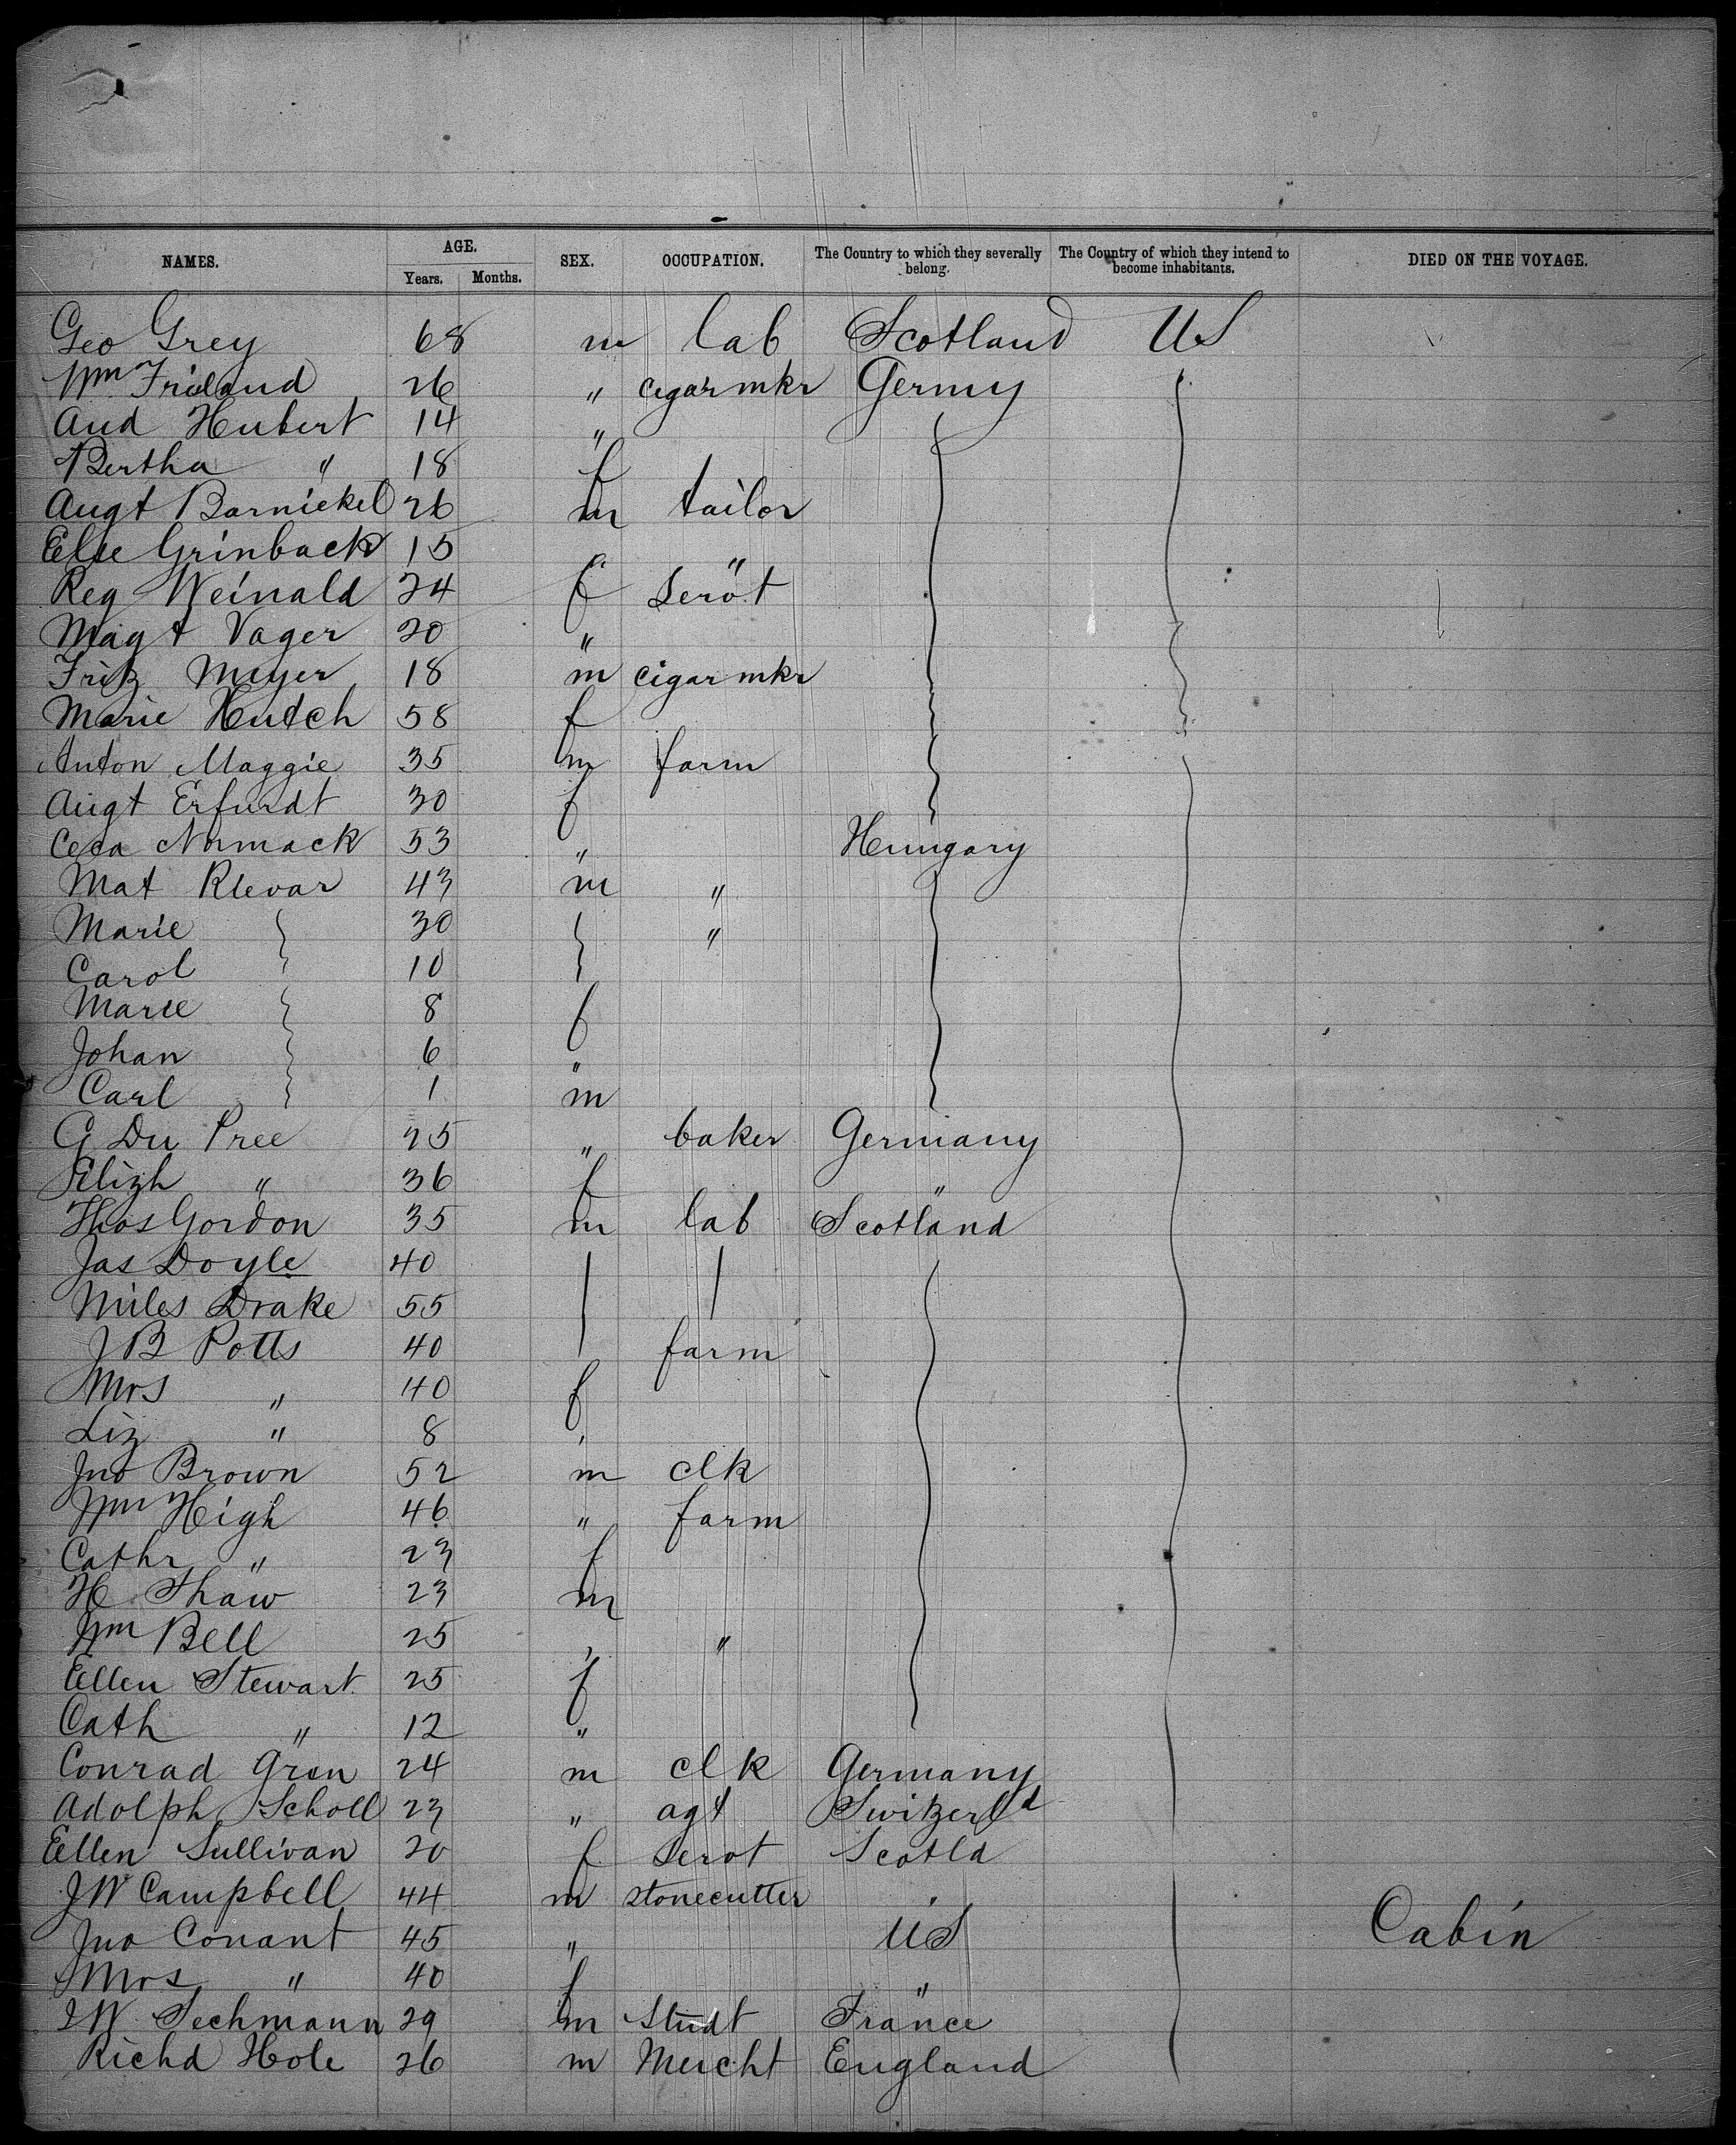 NAMES. AGE. Years. Months. SEX. OCCUPATION. The Country to which they severally belong. The Country of which they intend to become inhabitants. DIED ON THE VOYAGE.
Geo Grey 68 m lab Scotland US
Wm Friland 26 " cigar mkr Germy
Aud Hubert 14 "
Bertha " 18 f
Augt Barnickel 26 m tailor
Else Grinback 15 "
Reg Weinald 24 f servt
Magt Vager 20 "
Fritz Meyer 18 m cigar mkr
Marie Hutch 58 f
Anton Maggie 35 m farm
Augt Erfurdt 30 f
Ceca Normack 53 " Hungary
Mat Klevar 43 m "
Marie 30 "
Carol 10
Marie 8 f
Johan 6 "
Carl 1 m
G Du Pree 25 " baker Germany
Elizh " 36 f "
Thos Gordon 35 m lab Scotland
Jas Doyle 40
Miles Drake 55
J B Potts 40 farm
Mrs " 40 f
Liz " 8 "
Jno Brown 52 m clk
Wm Heigh 46 " farm
Cathr " 23 f
H Shaw 23 m
Wm Bell 25 " "
Ellen Stewart 25 f
Cath " 12 "
Conrad Gron 24 m clk Germany
Adolph Scholl 23 " agt Switzerld
Ellen Sullivan 20 f Servt Scotld
J W Campbell 44 m stonecutter "
Jno Conant 45 " US Cabin
Mrs " 40 f "
J W Sechmann 29 m Studt France
Richd Hole 26 m Mercht England